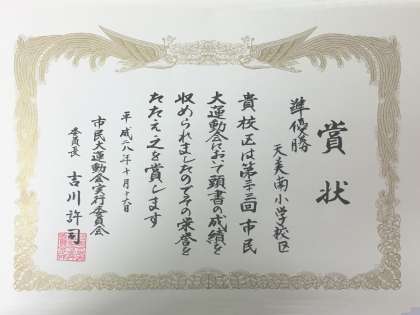 賞状
準優勝
天美南小学校区
貴校区は第 回市民
大運動会において頭書の成績を
収められましたのでその栄誉を
たたえ之を賞します
平成二八年十月十六日
市民大運動会実行委員会
委員長 吉川許司